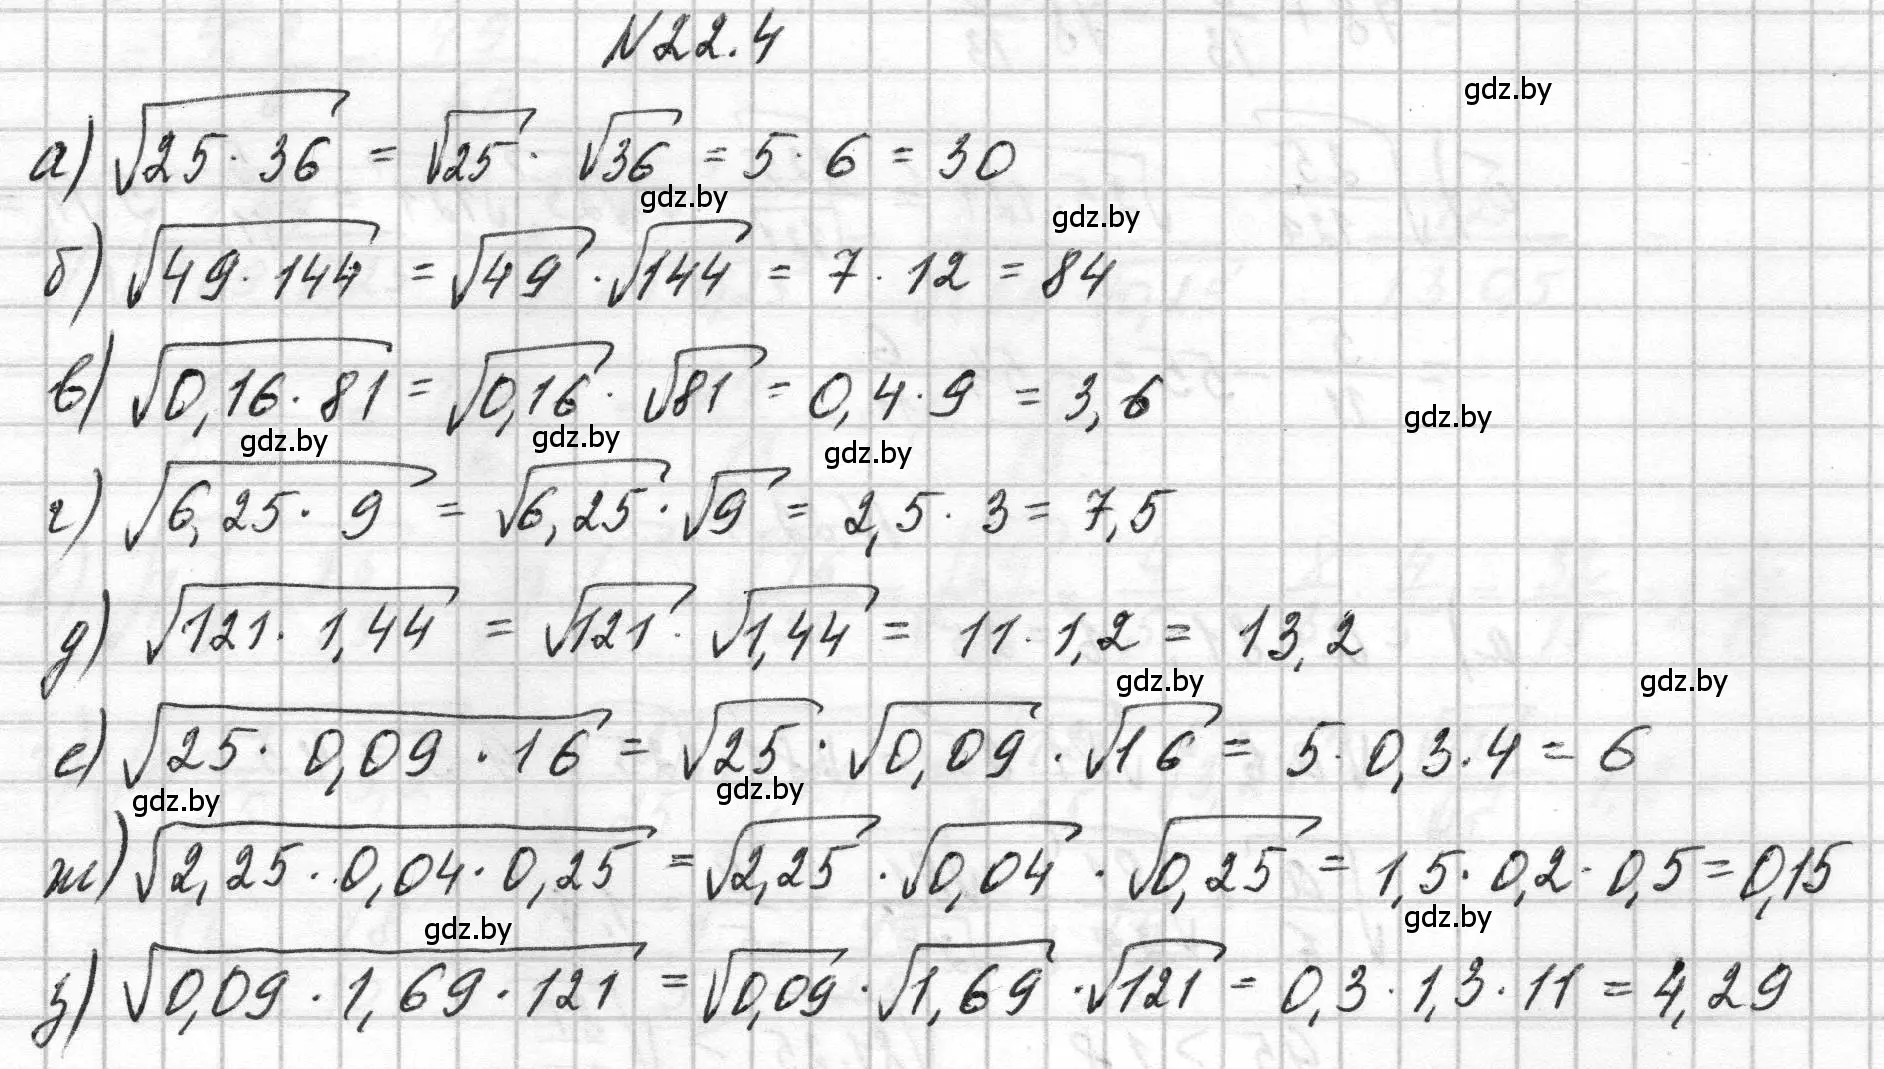 N 22.4
gdz.by
а) √25·36 = √25 · √36 = 5 · 6 = 30
gdz.by
gdz.by
б) √49·144 = √49 · √144 = 7 · 12 = 84
в) √0,16·81 = √0,16 · √81 = 0,4 · 9 = 3,6
gdz.by
gdz.by
gdz.by
gdz.by
г) √6,25·9 = √6,25 · √9 = 2,5 · 3 = 7,5
д) √121·1,44 = √121 · √1,44 = 11 · 1,2 = 13,2
gdz.by
gdz.by
е) √25·0,09·16 = √25 · √0,09 · √16 = 5 · 0,3 · 4 = 6
gdz.by
gdz.by
ж) √2,25·0,04·0,25 = √2,25 · √0,04 · √0,25 = 1,5 · 0,2 · 0,5 = 0,15
gdz.by
gdz.by
з) √0,09·1,69·121 = √0,09 · √1,69 · √121 = 0,3 · 1,3 · 11 = 4,29